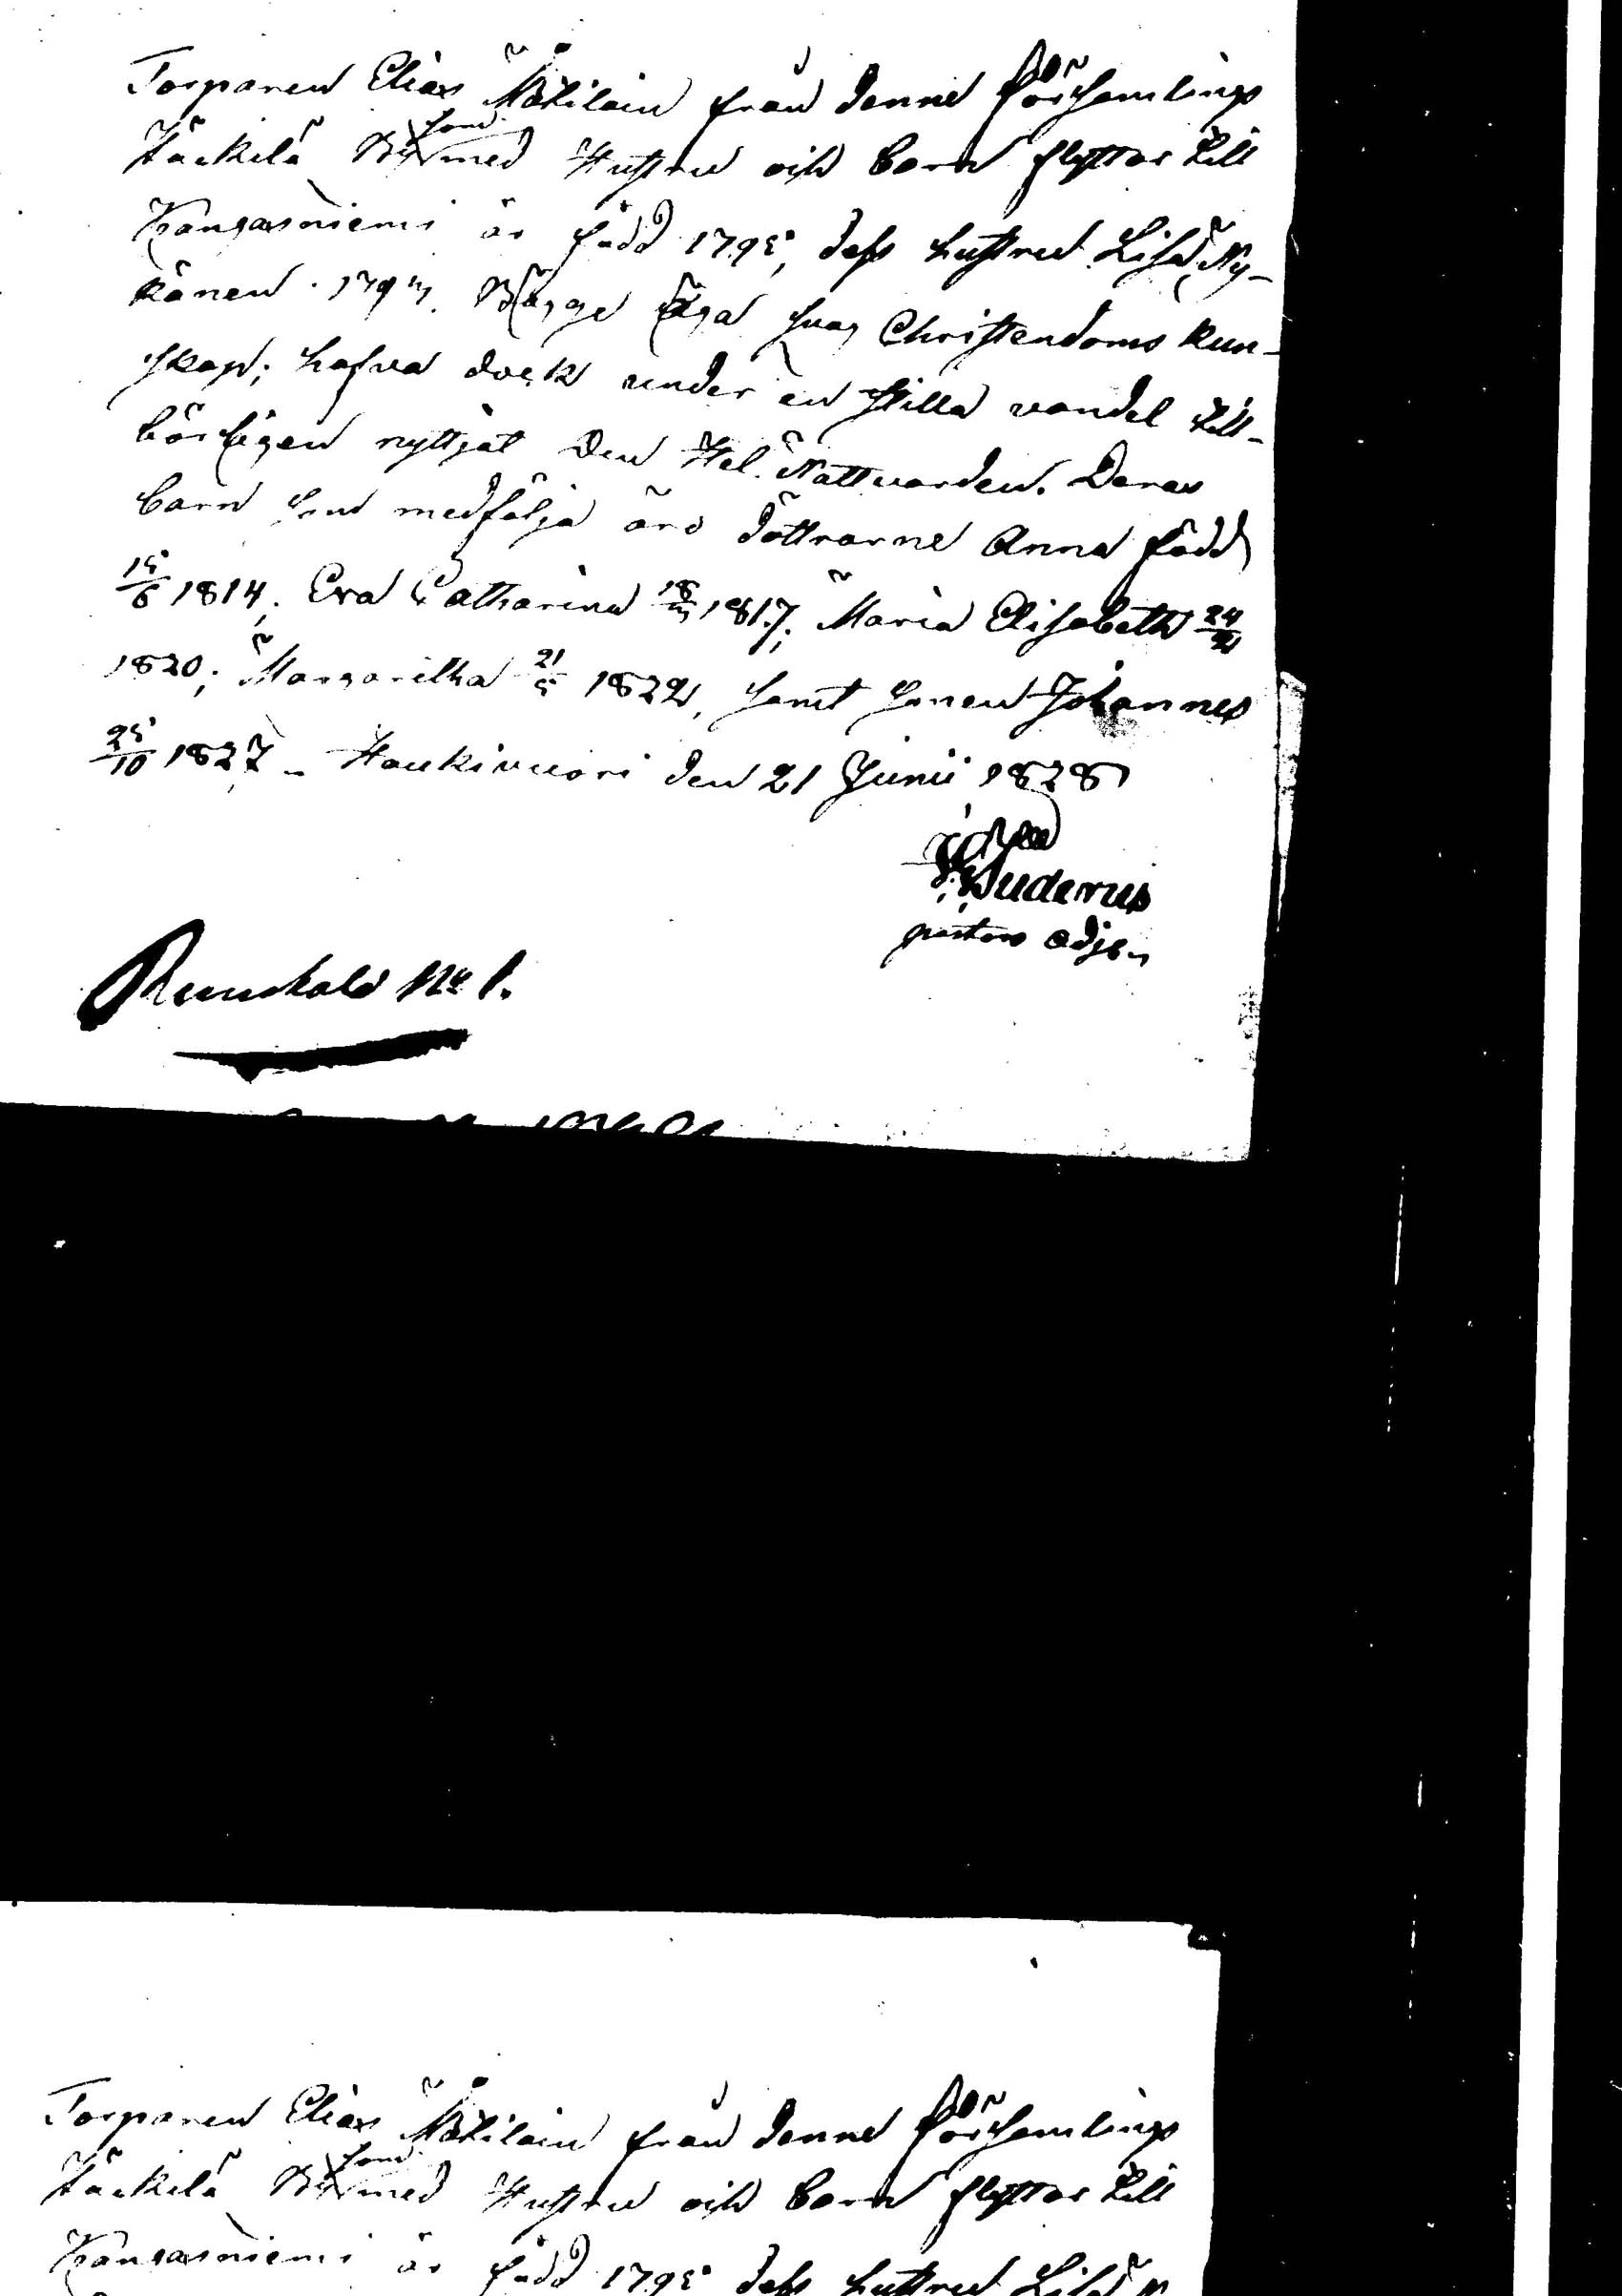 Torparen Elias Mäkiläin från denne församlings
Häckilä By som med Hustru och barn flyttar till
Kangasniemi är född 1795, dess hustru Lisa Ny-
känen 1793. Bägge äga svag Christendoms kun-
skap; hafva dock under en stilla vandel till-
börligen nyttjat Den Hel. Nattvarden. Deras
barn som medfölja äro döttrarne Anna född
15/6 1814; Eva Catharina 18/3 1817; Maria Elisabeth 24/2
1820; Margaretha 21/5 1822, samt sonen Johannes
25/10 1827 – Haukivuori den 21 Junii 1828
pastors adj:
No 1.
Torparen Elias Mäkiläin från denne församlings
Häckilä By som med Hustru och barn flyttar till
Kangasniemi är född 1795 dess hustru Lisa